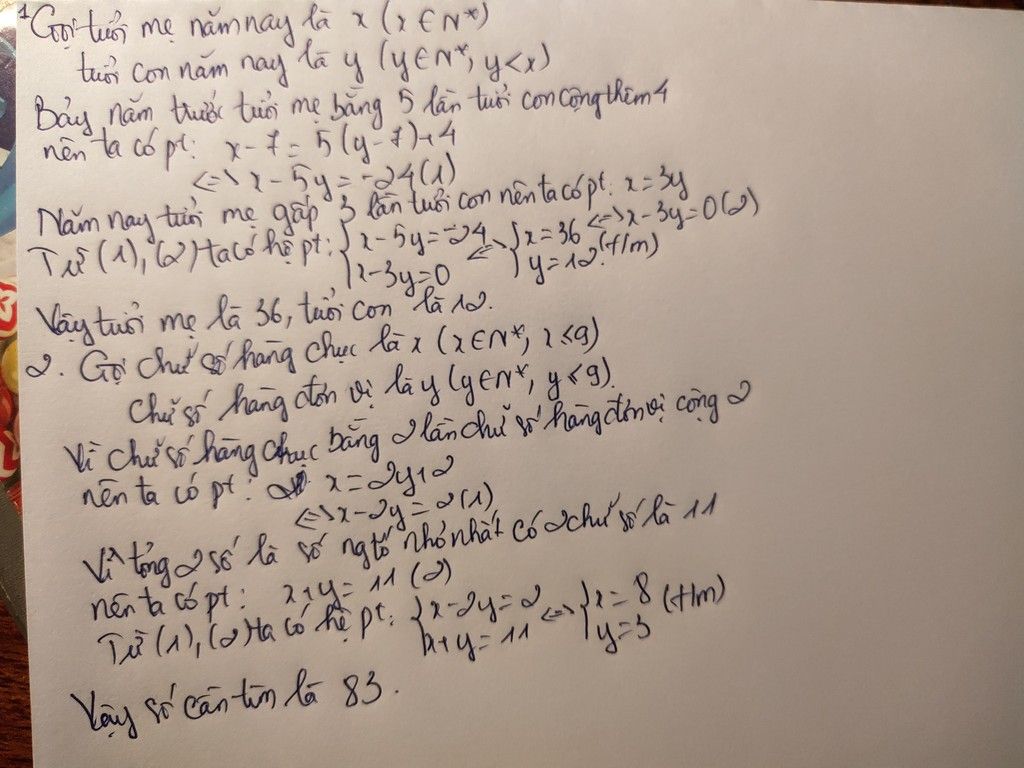 1 Gọi tuổi mẹ năm nay là x (x ∈ N*)
tuổi con năm nay là y (y ∈ N*, y < x)
Bảy năm trước tuổi mẹ bằng 5 lần tuổi con cộng thêm 4
nên ta có pt: x - 7 = 5(y - 7) + 4
<=> x - 5y = -24 (1)
Năm nay tuổi mẹ gấp 3 lần tuổi con nên ta có pt: x = 3y
<=> x - 3y = 0 (2)
Từ (1), (2) ta có hệ pt: { x - 5y = -24 <=> { x = 36
x - 3y = 0 y = 12 (t/m)
Vậy tuổi mẹ là 36, tuổi con là 12.
2. Gọi chữ số hàng chục là x (x ∈ N*, x ≤ 9)
Chữ số hàng đơn vị là y (y ∈ N*, y ≤ 9).
Vì chữ số hàng chục bằng 2 lần chữ số hàng đơn vị cộng 2
nên ta có pt: x = 2y + 2
<=> x - 2y = 2 (1)
Vì tổng 2 số là số ng tố nhỏ nhất có 2 chữ số là 11
nên ta có pt: x + y = 11 (2)
Từ (1), (2) ta có hệ pt: { x - 2y = 2 <=> { x = 8 (t/m)
x + y = 11 y = 3
Vậy số cần tìm là 83.